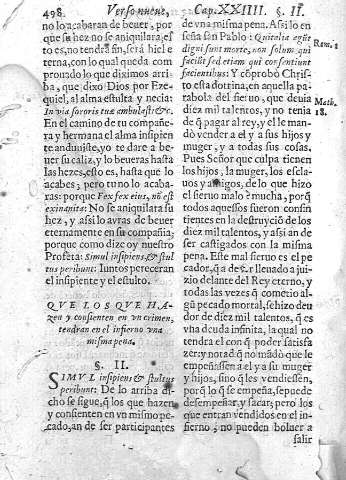 498. Verso nueue,
no lo acabaran de beuer, por
que su hez no se aniquilara, es
to es, no tendra fin, será hiel e
terna, con lo qual queda com
prouado lo que diximos arri
ba, que dixo Dios por Eze-
quiel, al alma estulta y necia:
In via sororis tuæ ambulasti &c.
En el camino de tu compañe-
ra y hermana el alma insipien
te anduuiste, yo te dare a be
uer su caliz, y lo beueras hasta
las hezes, esto es, hasta que lo
acabes; pero tu no lo acaba-
ras: porque Fex fex eius, nō est
exinanita: No se aniquilara su
hez, y assi lo avras de beuer
eternamente en su compañia;
porque como dize oy nuestro
Profeta: Simul insipiens, & stul
tus peribunt: Iuntos pereceran
el insipiente y el estulto.
QVE LOS QVE HA-
zen y consienten en vn crimen,
tendran en el infierno vna
misma pena.
§. II.
SIMVL insipiens & stultus
peribunt: De lo arriba di-
cho se sigue, q̃ los que hazen
y consienten en vn mismo pe-
cado, an de ser participantes
Cap. XXIIII. §. II.
de vna misma pena. Assi lo en
seña san Pablo: Qui talia agūt
digni sunt morte, non solum qui
facīūt sed etiam qui consentiunt
facientibus: Y cōprobó Chris-
to esta dotrina, en aquella pa
rabola del sieruo, que deuia
diez mil talentos, y no tenia
de q̃ pagar al rey, y el le man
dó vender a el y a sus hijos y
muger, y a todas sus cosas,
Pues Señor que culpa tienen
los hijos, la muger, los escla-
uos y amigos, de lo que hizo
el sieruo malo? mucha, porq̃
todos aquestos fueron consin
tientes en la destruició de los
diez mil talentos, y assi an de
ser castigados con la misma
pena. Este mal sieruo es el pe
cador, q̃ a de ser lleuado a jui-
zio delante del Rey eterno, y
todas las vezes q̃ cometio al-
gū pecado mortal, se hizo deu
dor de diez mil talentos, q̃ es
vna deuda infinita, la qual no
tendra el con q̃ poder satisfa
zer: y notad q̃ no mādó que le
empeñassen a el y a su muger
y hijos, sino q̃ les vendiessen,
porq̃ lo q̃ se empeña, se puede
desempeñar y sacar; pero los
que entran vendidos en el in-
fierno, no pueden boluer a
salir
Rom. 1.
Math.
18.